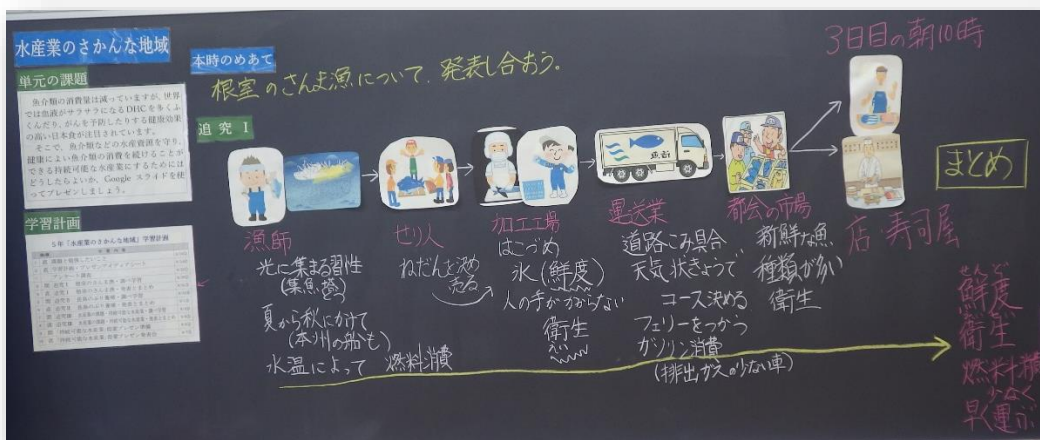 水産業のさかんな地域
単元の課題
魚介類の消費量は減っていますが、世界
では血液がサラサラになるDHCを多くふ
くんだり、がんを予防したりする健康効果
の高い日本食が注目されています。
そこで、魚介類などの水産資源を守り、
健康によい魚介類の消費を続けることが
できる持続可能な水産業にするためには
どうしたらよいか、Google スライドを使
ってプレゼンしましょう。
学習計画
5年「水産業のさかんな地域」学習計画
本時のめあて
根室のさんま漁について、発表し合おう。
追究 I
漁師
光に集まる習性
(集魚
夏から秋にかけて
(本州の船も)
水温によって
せり人
ねだんを決め
売る
燃料消費
加工工場
はこづめ
氷(鮮度)
人の手がかからない
衛生
えい
運送業
道路こみ具合
天気、状きょうで
コース決める
フェリーをつかう
ガソリン消費
(排出ガスの少ない車)
都会の市場
新鮮な魚
種類が多い
衛生
3日目の朝10時
店・寿司屋
まとめ
せんど
鮮度
衛生
燃料消費
少なく
早く運ぶ